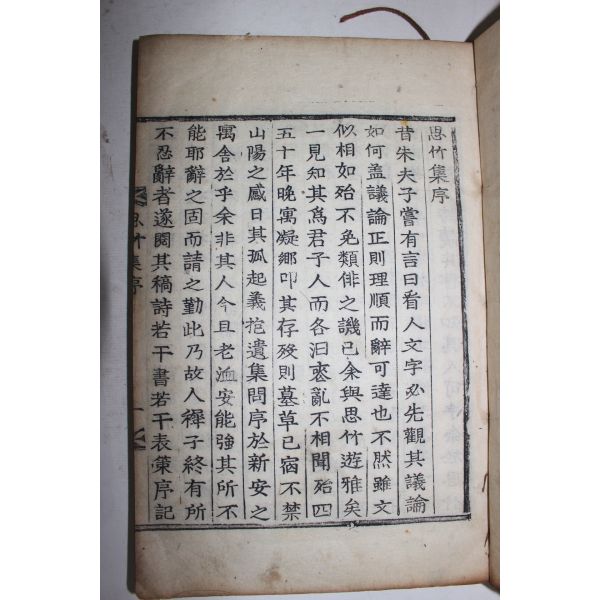 思竹集序
昔朱夫子嘗有言曰看人文字必先觀其議論
如何盖議論正則理順而辭可達也不然雖文
似相如殆不免類俳之譏已余與思竹遊雅矣
一見知其爲君子人而各汩喪亂不相聞殆四
五十年晚寓凝鄉叩其存歿則墓草已宿不禁
山陽之感日其孤起義抱遺集問序於新安之
寓舍於乎余非其人今且老洫安能強其所不
能耶辭之固而請之勤此乃故人禫子終有所
不忍辭者遂閱其稿詩若干書若干表策序記
思竹集序
一